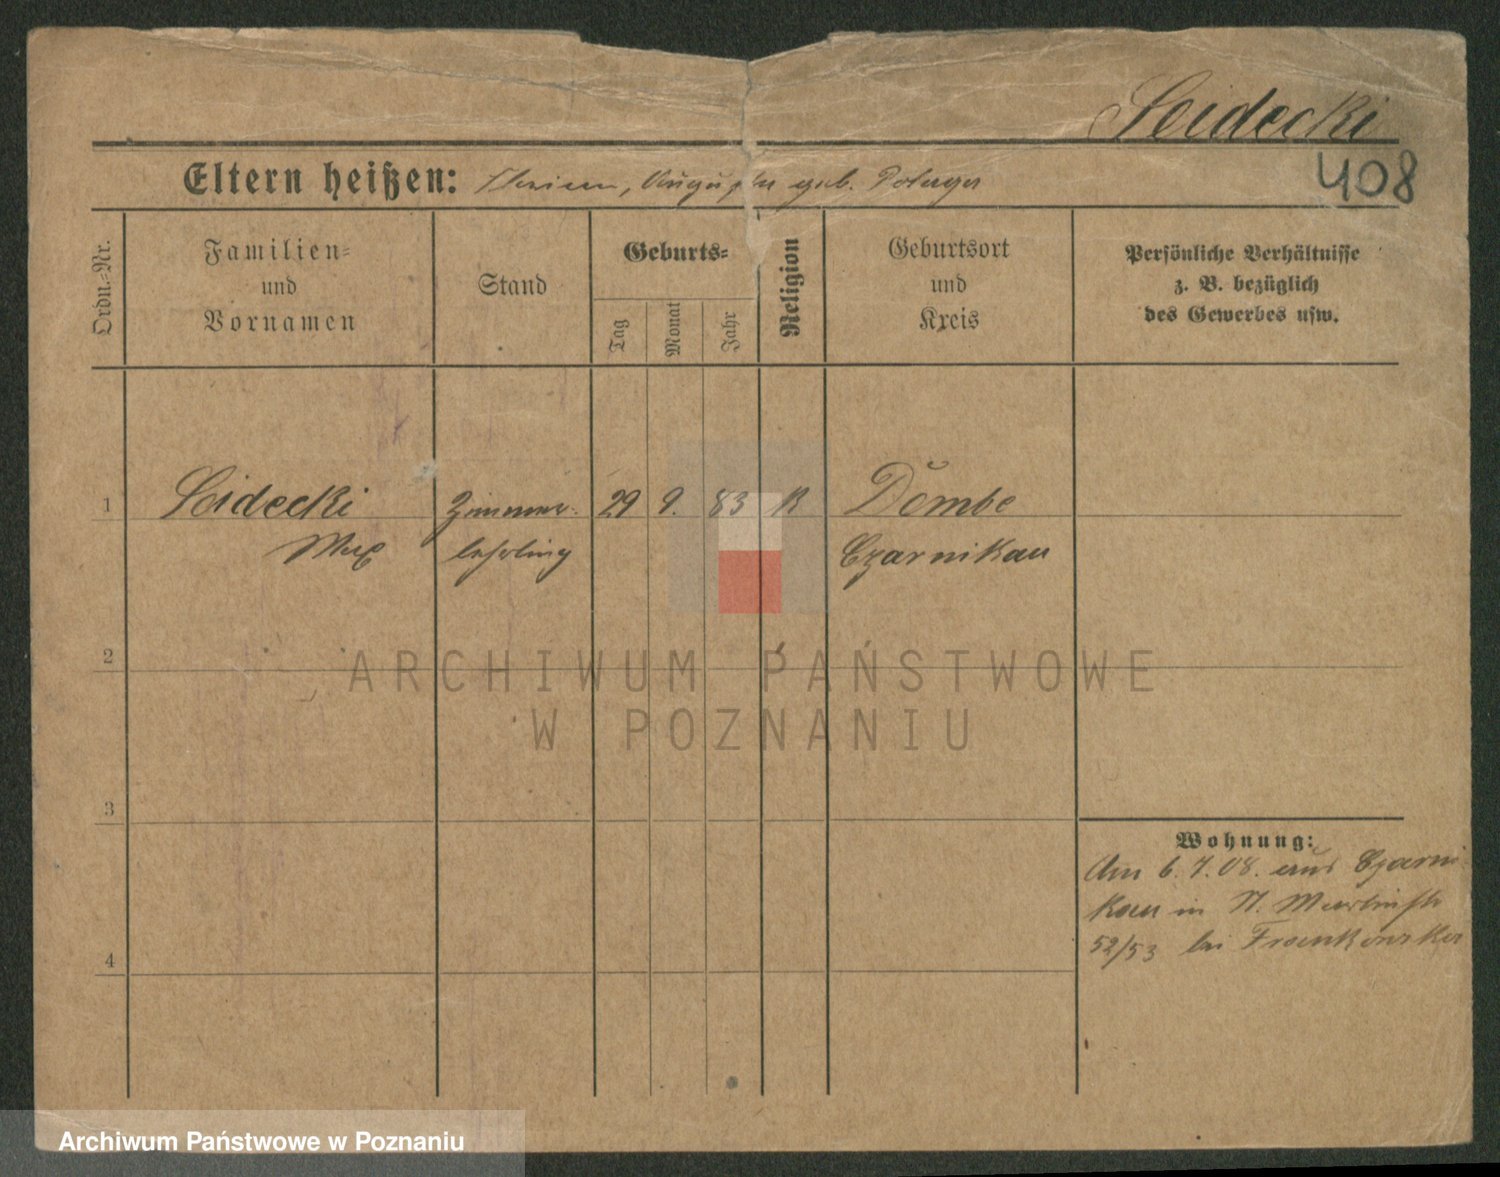 Seidecki
408
Eltern heißen: Florian, Auguste geb.
Ordn.-Nr.
Familien-
und
Vornamen
Stand
Geburts-
Tag
Monat
Jahr
Religion
Geburtsort
und
Kreis
Persönliche Verhältnisse
z. B. bezüglich
des Gewerbes usw.
1 Seidecki Zimmer- 29 9. 83 K Dembe
Max lehrling Czarnikau
2
3
4
Wohnung:
Am 6.7.08. aus Czarni-
kau in St. Martinstr
52/53 bei
ARCHIWUM PAŃSTWOWE
W POZNANIU
Archiwum Państwowe w Poznaniu